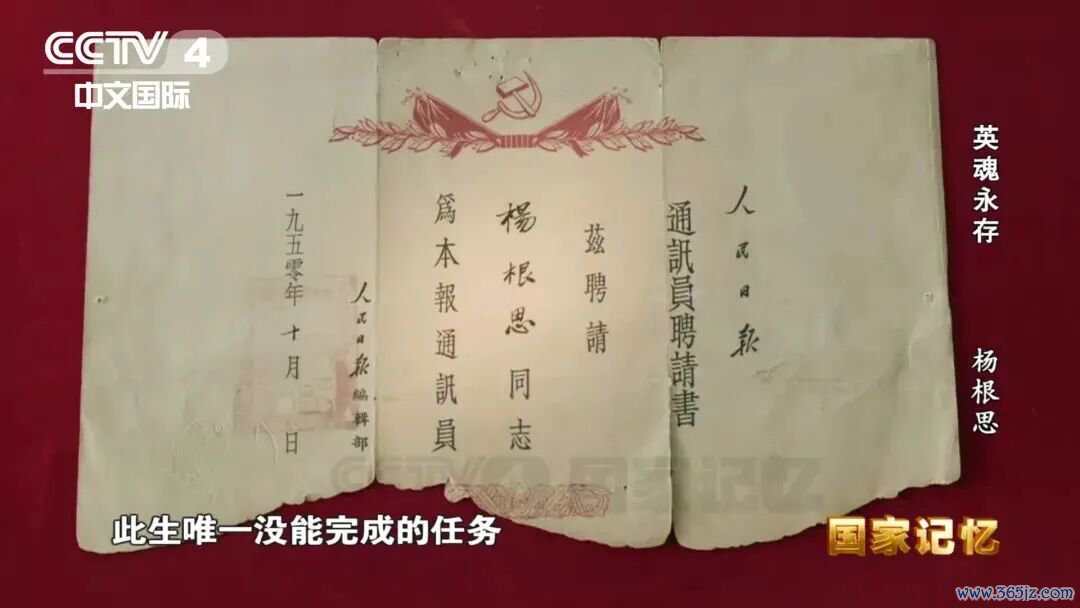 CCTV 4
中文国际
英魂永存 杨根思
人民日报
通訊員聘請書
茲聘請
楊根思同志
爲本報通訊員
人民日报編輯部
一九五零年十月 日
CCTV 4 国家记忆
此生唯一没能完成的任务
国家记忆
www.365jz.com